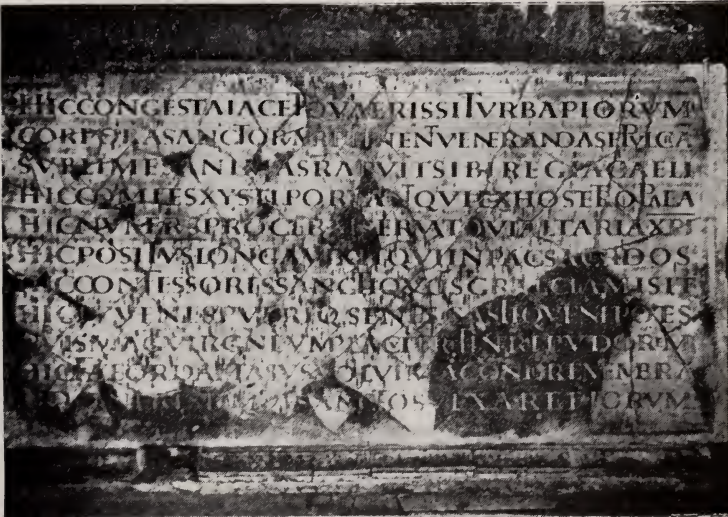 HIC CONGESTA IACET QVAERIS SI TVRBA PIORVM
CORPORA SANCTORVM RETINENT VENERANDA SEPVLCRA
SVBLIMES ANIMAS RAPVIT SIBI REGIA CAELI
HIC COMITES XYSTI PORTANT QVI EX HOSTE TROPAEA
HIC NVMERVS PROCERVM SERVAT QVI ALTARIA XPI
HIC POSITVS LONGA VIXIT QVI IN PACE SACERDOS
HIC CONFESSORES SANCTI QVOS GRAECIA MISIT
HIC IVVENES PVERIQ SENES CASTIQVE NEPOTES
VIRGINEVM PLACVIT RETINERE PVDOREM
HIC FATEOR DAMASVS VOLVI MEA CONDERE MEMBRA
SANCTOS VEXARE PIORVM